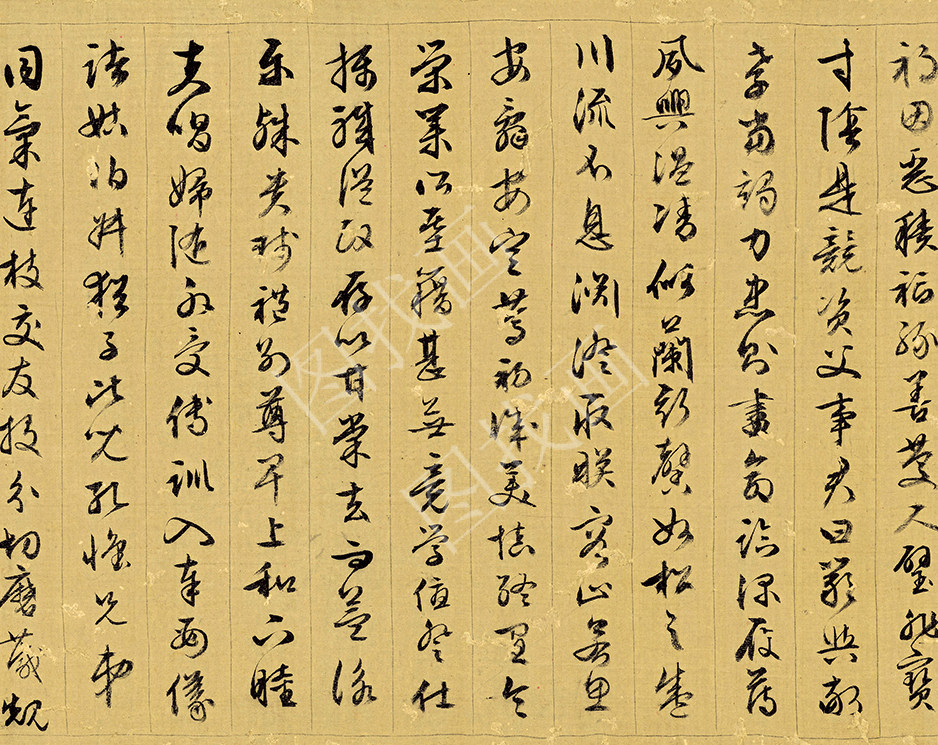 禍因惡積福緣善慶尺璧非寶
寸陰是競資父事君曰嚴與敬
孝當竭力忠則盡命臨深履薄
夙興溫凊似蘭斯馨如松之盛
川流不息淵澄取映容止若思
安辭安定篤初誠美慎終宜令
榮業所基籍甚無竟學優登仕
攝職從政存以甘棠去而益詠
樂殊貴賤禮別尊卑上和下睦
夫唱婦隨外受傅訓入奉母儀
諸姑伯叔猶子比兒孔懷兄弟
同氣連枝交友投分切磨箴規
图找画
图找画